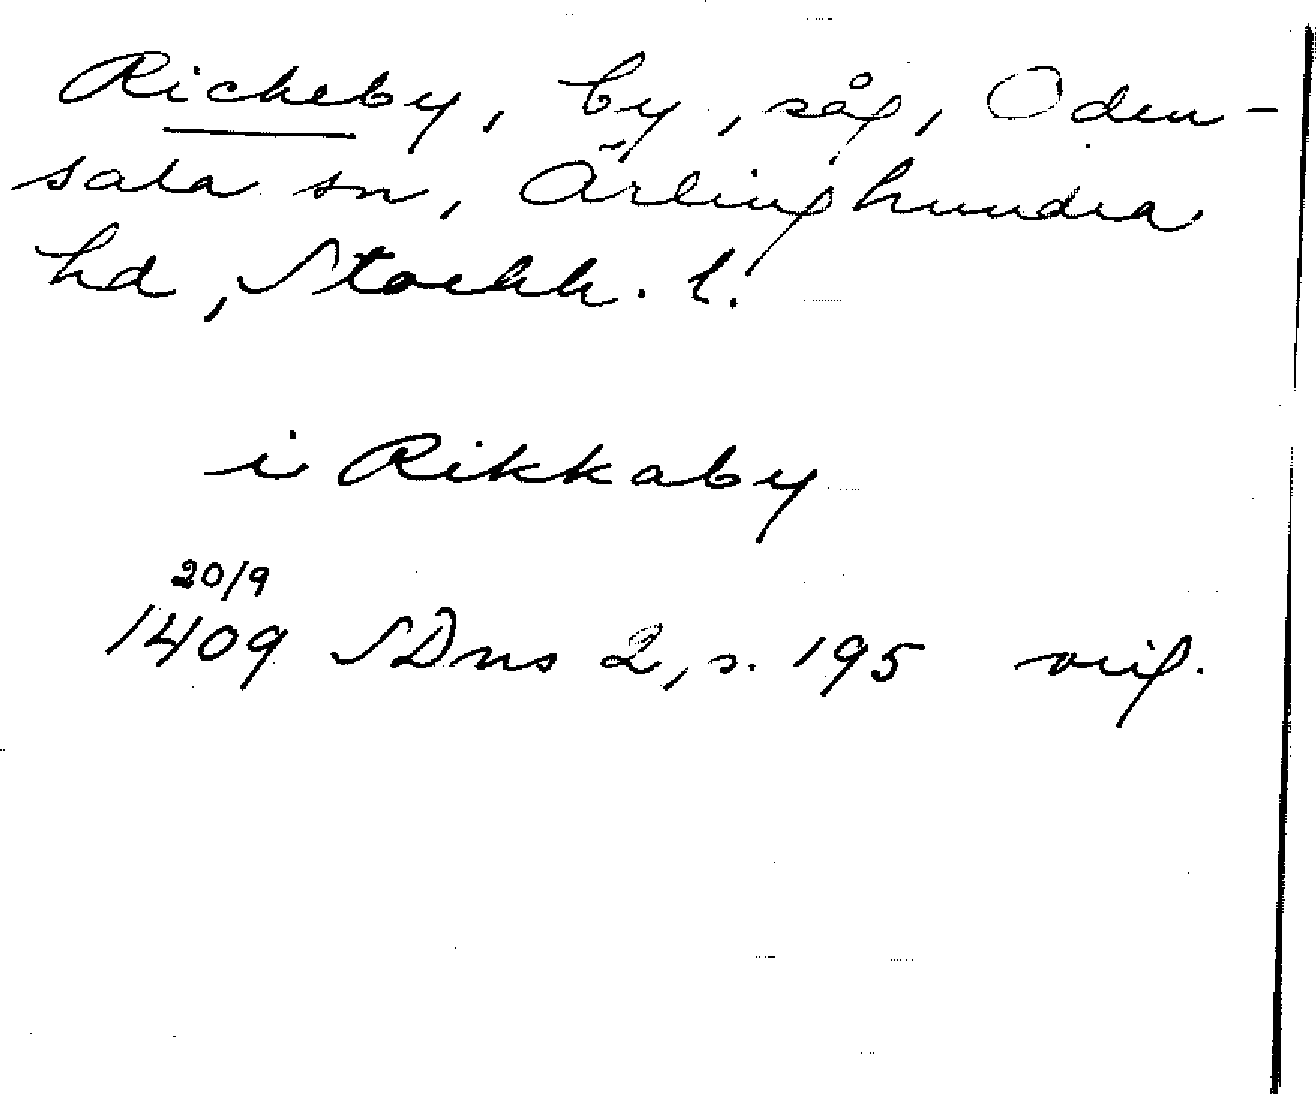 Rickeby, by, såg, Oden-
sala sn, Ärlinghundra
hd, Stockh. l.
i Rikkaby
20/9
1409 SDns 2, s. 195 orig.